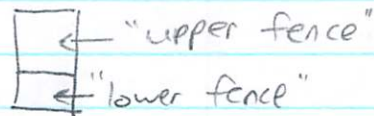 "upper fence"
"lower fence"